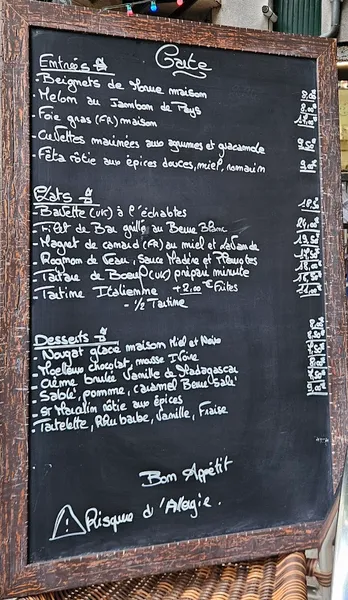 Carte
Entrées
- Beignets de Morue maison
- Melon au Jambon de Pays
- Foie gras (FR) maison
- Crevettes marinées aux agrumes et guacamole
- Fêta rôtie aux épices douces, miel, romarin
Plats
- Bavette (UK) à l'échalotes
- Filet de Bar grillé au Beurre Blanc
- Magret de canard (FR) au miel et Lavande
- Rognon de Veau, Sauce Madère et Pleurotes
- Tartare de Boeuf (UK) préparé minute
- Tartine Italienne +2.00€ Frites
- 1/2 Tartine
Desserts
- Nougat glacé maison Miel et Noix
- Moelleux chocolat, mousse Ivoire
- Crème brulée Vanille de Madagascar
- Sablé, pomme, caramel Beurre Salé
- St Marcellin rôtie aux épices
- Tartelette, Rhubarbe, Vanille, Fraise
Bon Appétit
Risque d'Alergie.